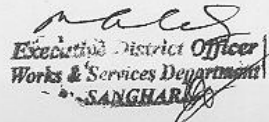 Executive District Officer
Works & Services Department
SANGHAR